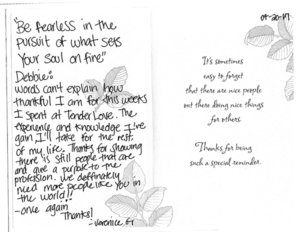 "Be fearless in the
pursuit of what sets
Your soul on fire"
Debbie:
words can't explain how
thankful I am for this weeks
I spent at Tender Love. The
experience and knowledge I've
gain I'll take for the rest
of my life. Thanks for showing
there is still people that care
and give a purpose to the
profession. We deffinately
need more people like you in
the world!!
- once again
Thanks!
- Verenice G
09-20-17
It's sometimes
easy to forget
that there are nice people
out there doing nice things
for others.
Thanks for being
such a special reminder.